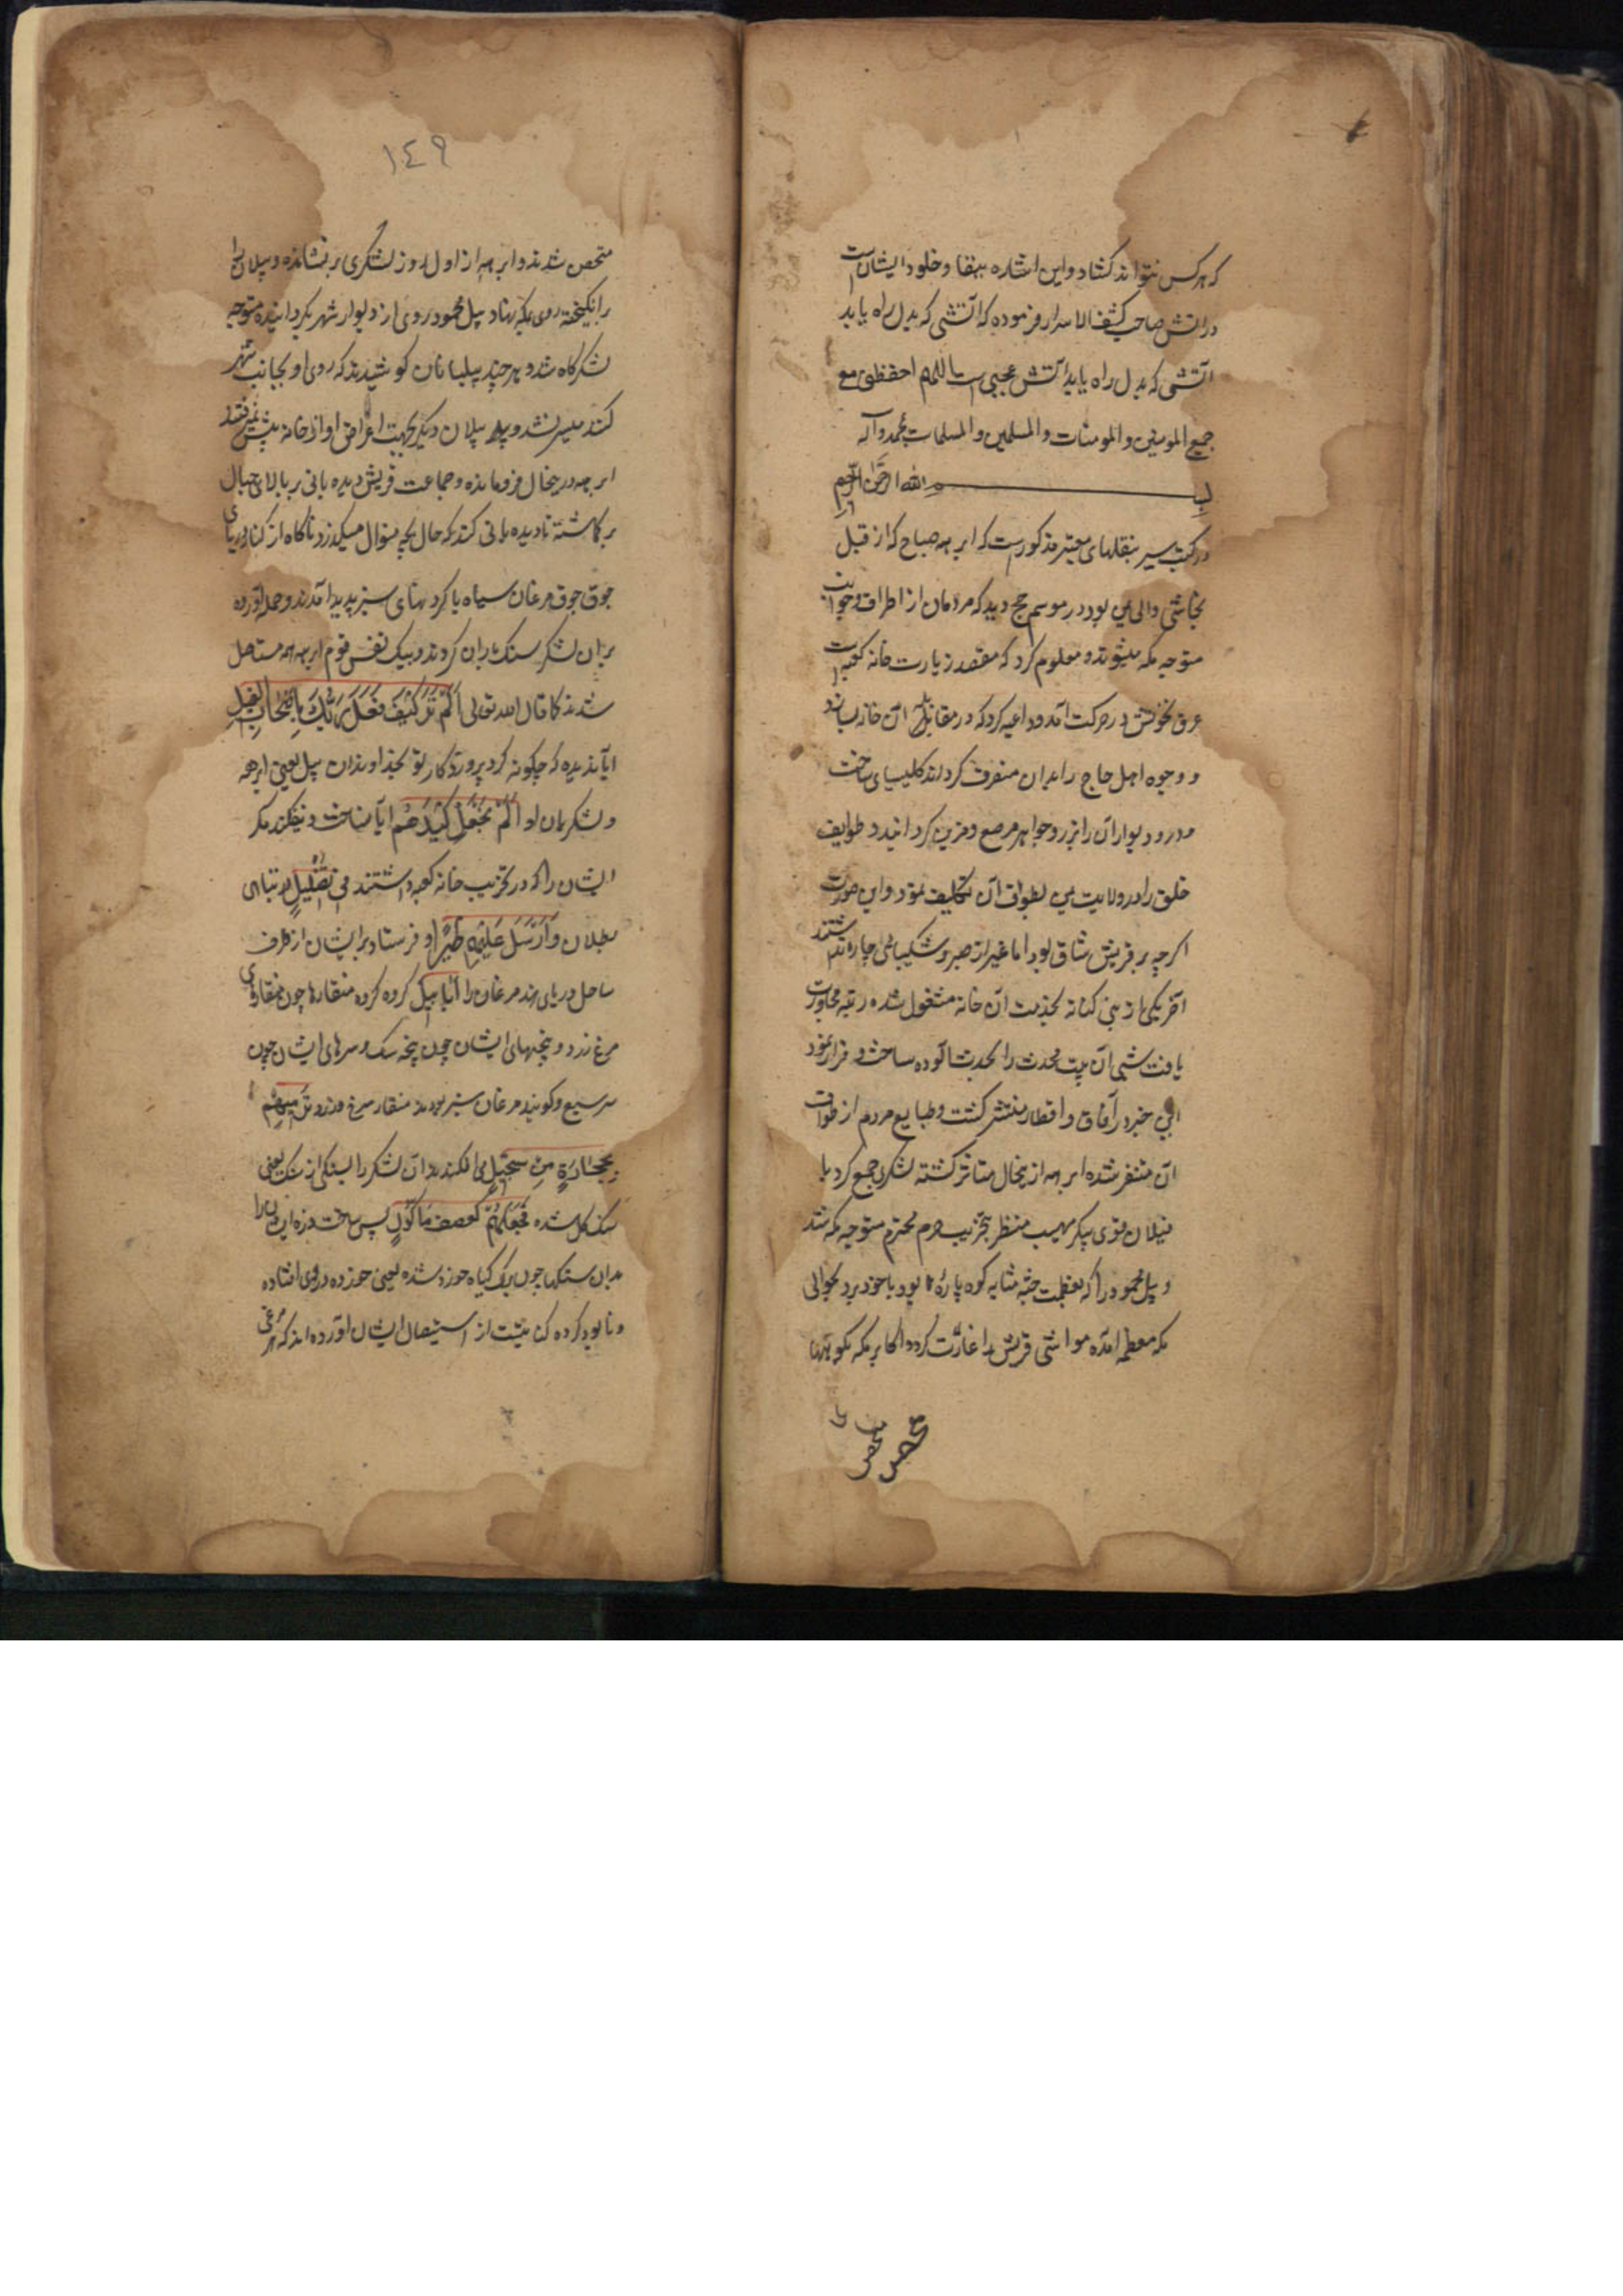 که هرکس نتواند کشاد و این اشاره ببقا و خلود ایشانست
در آتش صاحب کشف الاسرار فرموده که آتشی که بدل راه یابد
آتشی که بدل راه یابد آتش عجبی است اللهم احفظنی مع
جمیع المومنین و المومنات و المسلمین و المسلمات بمحمد و آله
بسم الله الرحمن الرحیم
در کتب سیر بنقلهای معتبر مذکورست که ابرهه صباح که از قبل
نجاشی والی یمن بود در موسم حج دید که مردمان از اطراف و جوانب
متوجه مکه میشوند و معلوم کرد که مقصد زیارت خانه کعبه است
عرق نخوتش در حرکت آمد و داعیه کرد که در مقابل آن خانه بسازد
و وجوه اهل حاج را بدان منصرف کرداند کلیسیای ساخت
و در و دیوار آن را بزر و جواهر مرصع و مزین کردانید و طوایف
خلق را در ولایت یمن بطواف آن تکلیف نمود و این صورت
اکرچه بر قریش شاق بود اما غیر از صبر و شکیبائی چاره نداشتند
آخر یکی از بنی کنانه بخدمت آن خانه مشغول شده رتبه مجاورت
یافت شبی آن بیت محدث را بحدث آلوده ساخت و فرار نمود
این خبر در آفاق و اقطار منتشر کشت و طبایع مردم از طواف
آن متنفر شده ابرهه ازینحال متاثر کشته لشکر جمع کرد با
فیلان قوی پیکر مهیب منظر بتخریب حرم محترم متوجه مکه شد
و پیل محمود را که بعظمت جثه مشابه کوه پاره بود با خود برد بحوالی
مکه معظمه آمده مواشی قریش را غارت کرد و اکابر مکه بکوهها
متحصن
١٤٩
متحصن شدند و ابرهه از اول روز لشکری برنشانده و پیلان را
برانکیخته روی بمکه نهاد پیل محمود روی از دیوار شهر بکردانیده متوجه
لشکرکاه شد و هرچند پیلبانان کوشیدند که روی او بجانب شهر
کنند میسر نشد و پیلان دیکر بجهت اعراض او از خانه پیش نمیرفتند
ابرهه درینحال فرومانده و جماعت قریش دیده بانی بر بالای جبال
برکماشته تا دیده بانی کند که حال بچه منوال میکذرد ناکاه از کنار دریای
جوق جوق مرغان سیاه با کردنهای سبز پدید آمدند و حمله آورده
بران لشکر سنک باران کردند و بیک نفس قوم ابرهه همه مستاصل
شدند کما قال الله تعالی اَلَمْ تَرَ کَیْفَ فَعَلَ رَبُّکَ بِاَصْحَابِ الْفِیلِ
ایا ندیده که چکونه کرد پروردکار تو بخداوندان پیل یعنی ابرهه
و لشکریان او اَلَمْ یَجْعَلْ کَیْدَهُم ایا نساخت و نیفکند مکر
ایشان را که در تخریب خانه کعبه داشتند فِی تَضْلِیلٍ در تباهی
و بطلان وَاَرْسَلَ عَلَیْهِم طَیْرًا و فرستاد بر ایشان از طرف
ساحل دریای هند مرغان را اَبَابِیلَ کروه کروه منقارها چون منقارهای
مرغ زرد و پنجهای ایشان چون پنجه سک و سرهای ایشان چون
سر سبع و کویند مرغان سبز بودند منقار سرخ و زرد تَرْمِیهِم
بِحِجَارَةٍ مِن سِجِّیلٍ می افکندند آن لشکر را بسنکی از سنک یعنی
سنک کل شده فَجَعَلَهُمْ کَعَصْفٍ مَأکُولٍ پس ساخت خدای ایشان را
بدان سنکها چون برک کیاه خورد شده یعنی خورده در وی افتاده
و نابود کرده کنایتست از استیصال ایشان آورده اند که هر مرغی